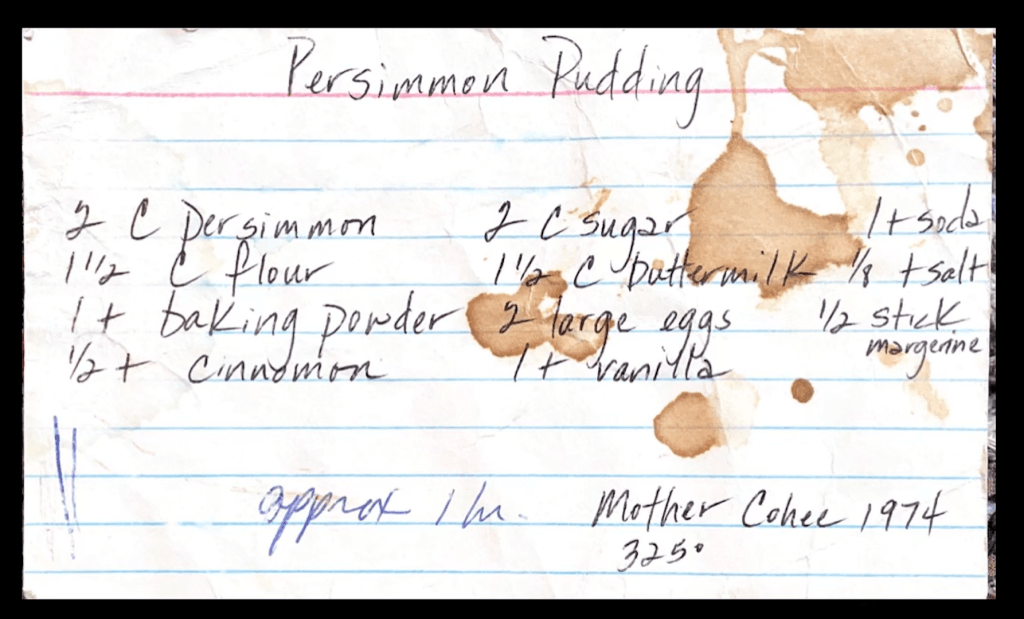 Persimmon Pudding
2 C persimmon 2 C sugar 1 t soda
1 1/2 C flour 1 1/2 C buttermilk 1/8 t salt
1 t baking powder 2 large eggs 1/2 stick
margerine
1/2 t cinnamon 1 t vanilla
approx 1 hr. Mother Cohee 1974
325°